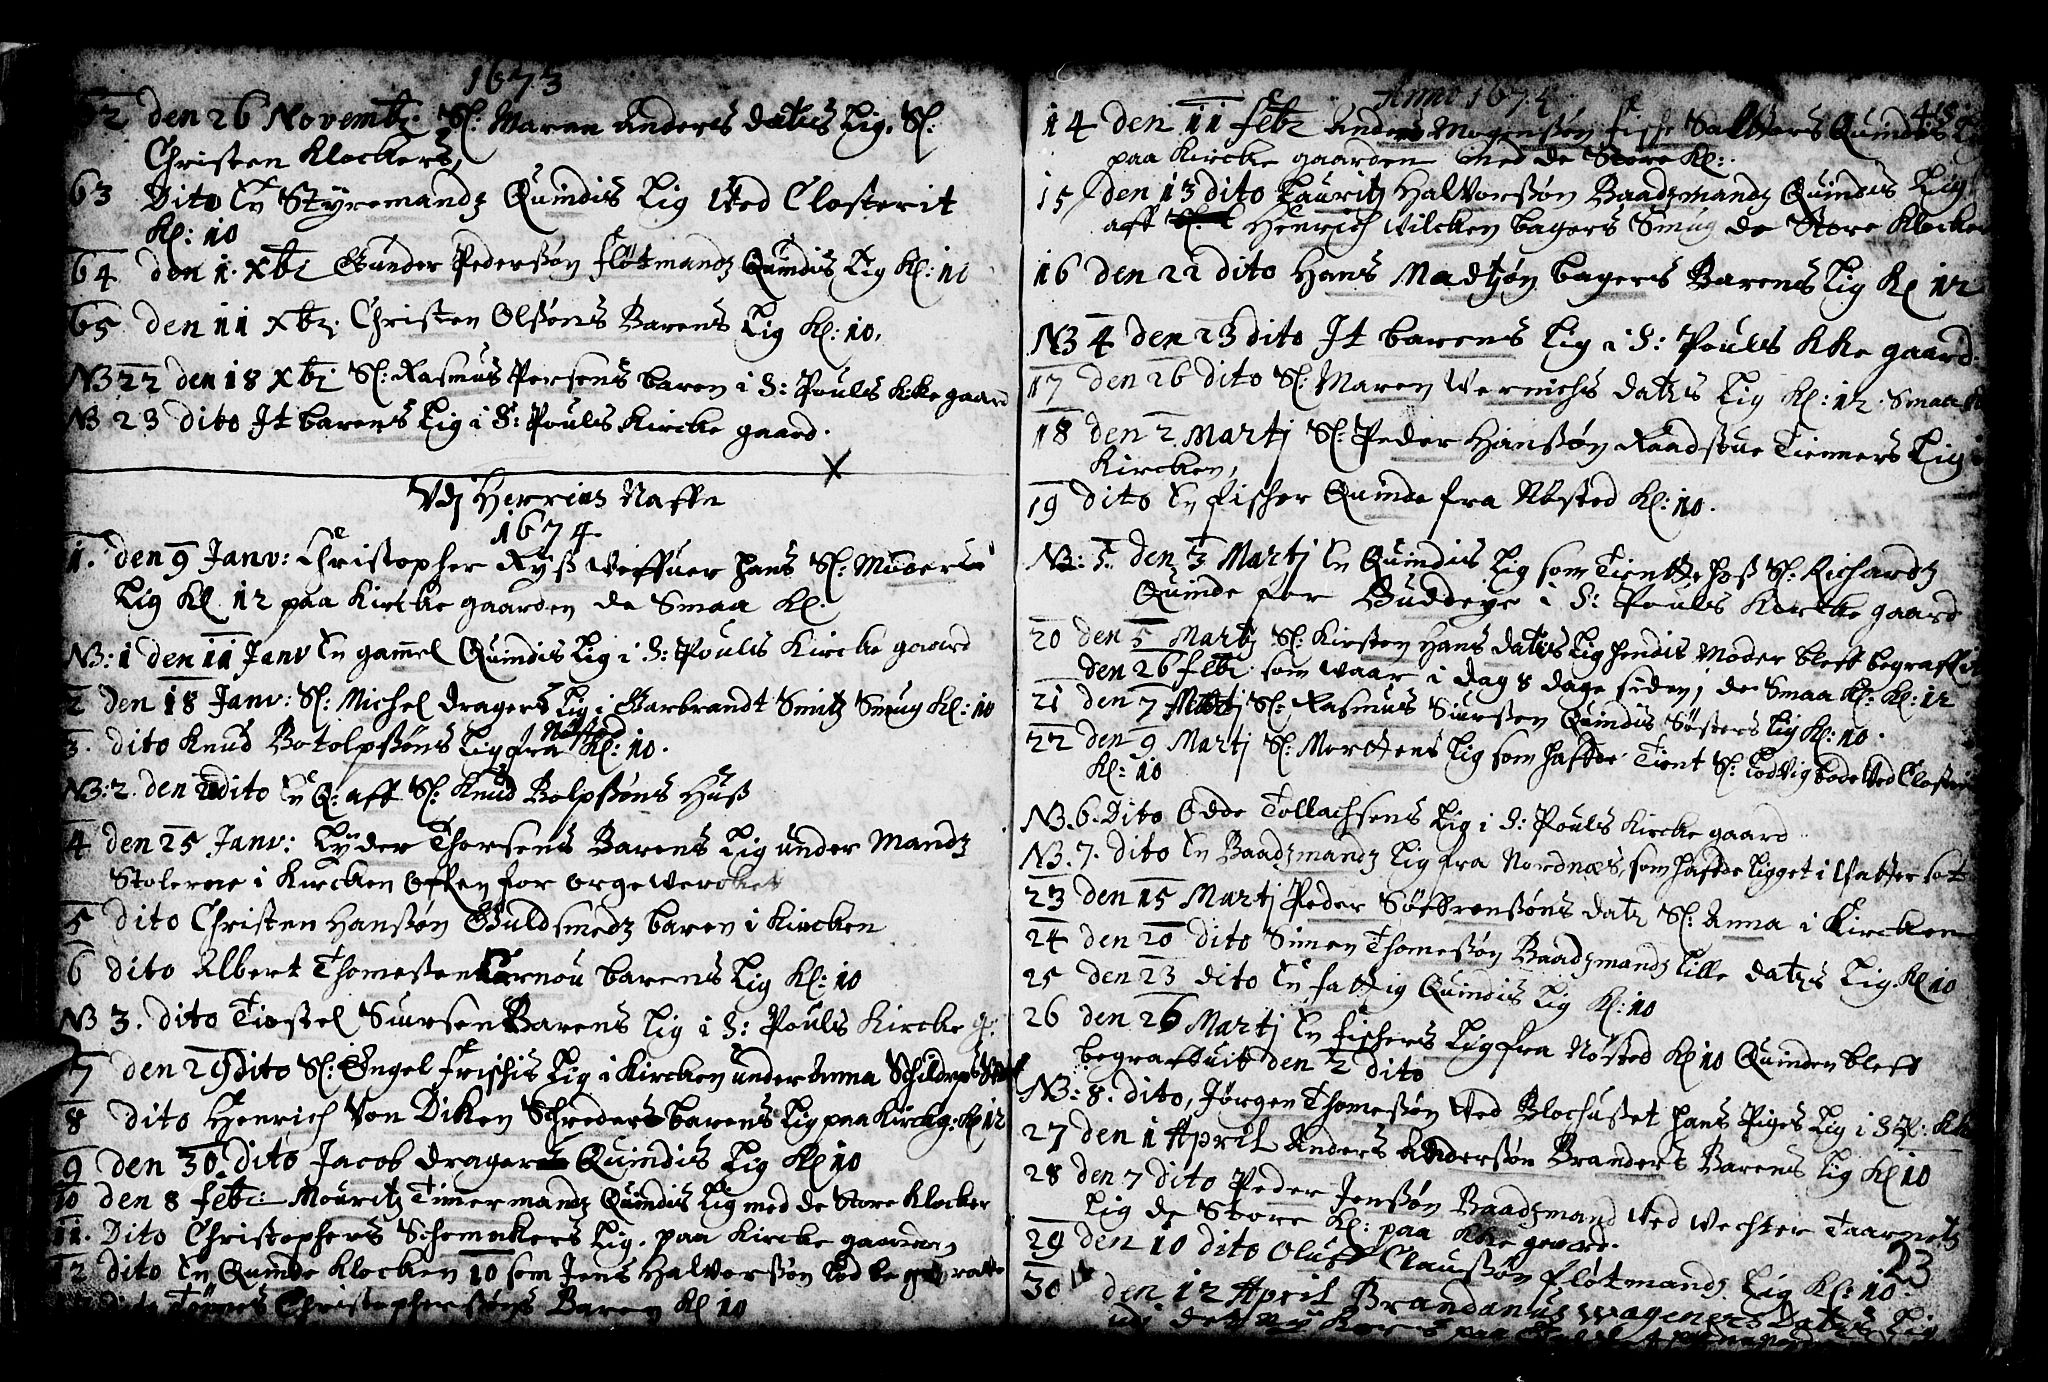 1673
62 den 26 Novembr. Sl: Maren Anders datis Lig. Sl:
Christen Klockers,
63 Dito En Styremandz Quindis Lig Ved Closterit
Kl: 10
64 den 1. Xbr Gunder Pederssøn fløtmandz Quindis Lig Kl: 10
65 den 11 Xbr. Christen Olssøns Barens Lig Kl: 10.
NB 22 den 18 Xbr Sl: Rasmus Persens baren i S: Pouls Kke gaard
NB 23 dito It barens Lig i S: Pouls Kircke gaard.
Vdj Herrens Naffn
1674.
1. den 9 Janv: Christopher Ryss Veffuer hans Sl: Moders
Lig Kl 12 paa Kircke gaarden de Smaa Kl.
NB: 1 den 11 Janv En gammel Quindis Lig i S: Pouls Kircke gaard
2 den 18 Janv: Sl: Michel dragers Lig i Garbrandt Smitz Smug Kl: 10
3. dito Knud Botolpssøns Lig fra Nøsted Kl: 10.
NB: 2. den dito En Q: aff Sl: Knud Bolpssøns Huss
4 den 25 Janv: Lyder Thorsens Barens Lig under Mandz
Stolerne i Kircken Offen for orgewercket
5 dito Christen Hanssøn Guldsmedz baren i Kircken
6 dito Albert Thomessen barens Lig Kl: 10
NB 3. dito Tiostel Siursens Barens Lig i S: Pouls Kircke g:
7 den 29 Dito Sl: Engel Frischis Lig i Kircken under Anna Schilderups
8 dito Henrich Von Diken Schreders barens Lig paa Kirckg: Kl 12
9 den 30. dito Jacob dragers Quindis Lig Kl 10
10 den 8 febr: Mouritz Timermandz Quindis Lig med de Store Klocker
11. Dito Christophers Schomakers Lig. paa Kircke gaarden
12 dito En Quinde Klocken 10 som Jens Halvorssøn lod begraffue
dito Tønnes Christopherssøns Baren Kl 10
Anno 1674
14 den 11 febr Anders Mogenssøn fische Salters Quindis Lig
paa Kircke gaarden med de Store Kl:.
15 den 13 dito Lauritz Halvorssøn Baadzmandz Quindis Lig
aff Henrich Vilcken bagers Smug de Store Klocker
16 den 22 dito Hans Madtzøn bagers Barens Lig Kl 12
NB 4 den 23 dito It barens Lig i S: Pouls Kke gaard.
17 den 26 dito Sl: Maren Vernichs datis Lig Kl: 12 Smaa Kl
18 den 2 Martj Sl: Peder Hanssøn Raadstue Tienners Lig i
Kircken,
19 dito En fischer Quinde fra Nøsted Kl: 10.
NB: 5. den 3 Martj En Quindis Lig som Tientte hoss Sl: Richardz
Quinde for Buddeye i S: Pouls Kircke gaard
20 den 5 Martj Sl: Kirsten Hans datis Lig hendis Moder bleff begraffuit
den 26 febr. som waar i dag 8 dage siden, de Smaa Kl: Kl: 12
21 den 7 Martj Sl: Rasmus Siurssøn Quindis Søsters Lig Kl: 10.
22 den 9 Martj Sl: Mortens Lig som haffde Tient Sl: Lodvig bode Ved Closterit
Kl: 10
NB. 6. Dito Odde Tollachsens Lig i S: Pouls Kircke gaard
NB. 7. dito En Baadzmandz Lig fra Nordnæs, som hafde ligget i Vatter sot
23 den 15 Martj Peder Søffrenssøns datr Sl: Anna i Kircken
24 den 20 dito Simen Thomessøn Baadzmandz Lille datis Lig. Kl 10
25 den 23 dito En fattig Quindis Lig Kl: 10
26 den 26 Martj En fischers Lig fra Nøsted Kl 10 Quinden bleff
begraffuit den 2 dito
NB: 8. dito, Jørgen Thomessøn Ved Blochuset hans Piges Lig i S: P: Kke
27 den 1 April Anders Anderssøn Branders Barens Lig Kl 10
28 den 7 dito Peder Jenssøn Baadzmand Ved Wechter Taarnetz
Lig de Store Kl: paa Kke gaard.
29 den 10 dito Oluff Claussøn fløtmandz Lig Kl: 10.
23
30 den 12 April Brandanus Wageners Datis Lig